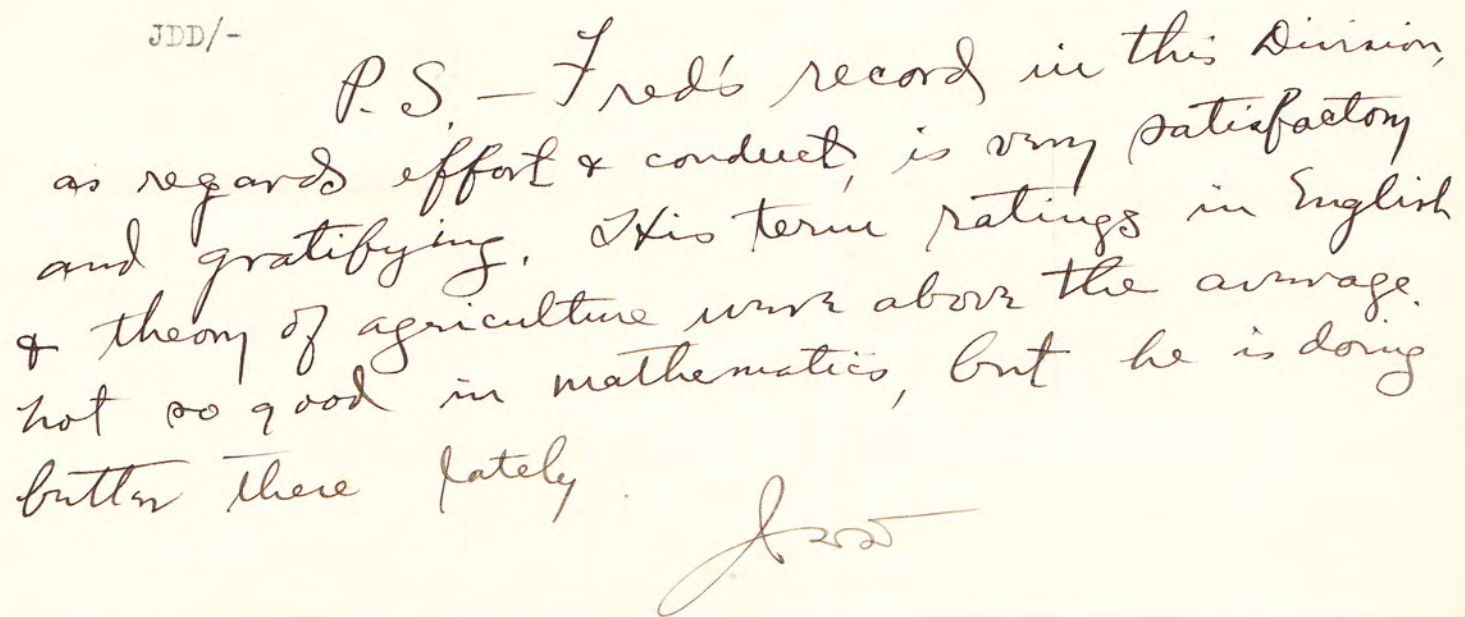 JDD/-
P.S. — Fred's record in this Division,
as regards effort & conduct, is very satisfactory
and gratifying. His term ratings in English
& theory of agriculture were above the average.
not so good in mathematics, but he is doing
better there lately.
JDD